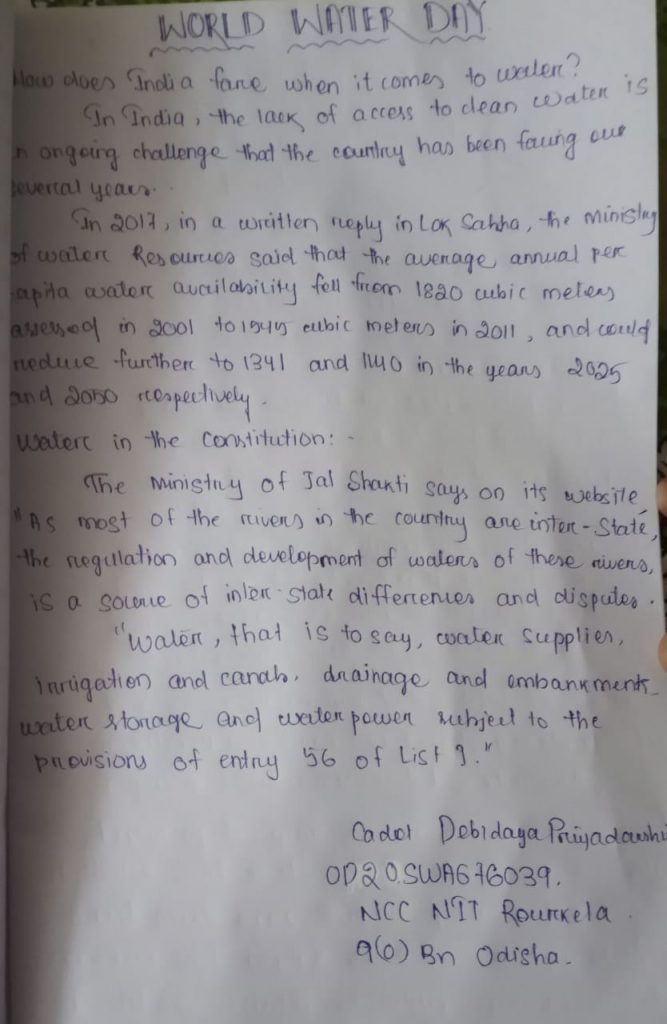 WORLD WATER DAY
How does India fare when it comes to water?
In India, the lack of access to clean water is
n ongoing challenge that the country has been facing our
several years.
In 2017, in a written reply in Lok Sabha, the ministry
of water Resources said that the average annual per
apita water availability fell from 1820 cubic meters
assessed in 2001 to 1545 cubic meters in 2011, and could
reduce further to 1341 and 1140 in the years 2025
and 2050 respectively.
Water in the Constitution: -
The Ministry of Jal Shakti says on its website
"As most of the rivers in the country are inter-State,
the regulation and development of waters of these rivers,
is a source of inter-state differences and disputes.
"Water, that is to say, water supplies,
irrigation and canals, drainage and embankments
water storage and water power subject to the
provisions of entry 56 of List I."
Cadet Debidaya Priyadarshi
OD20SWA676039.
NCC NIT Rourkela.
9(O) Bn Odisha.